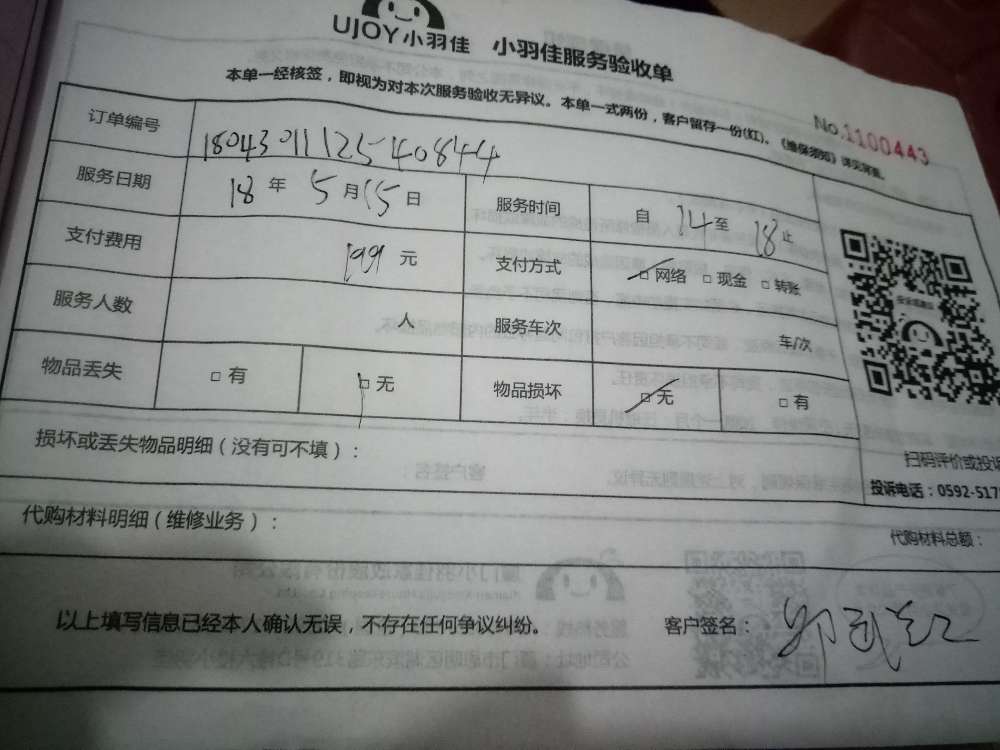 UJOY小羽佳 小羽佳服务验收单
本单一经核签，即视为对本次服务验收无异议。本单一式两份，客户留存一份(红)。《维保须知》详见背面。
No.1100443
订单编号 1804301112540844
服务日期 18 年 5 月 15 日 服务时间 自 14 至 18 止
支付费用 199 元 支付方式 □ 网络 □ 现金 □ 转账
服务人数 人 服务车次 车/次
物品丢失 □ 有 □ 无 物品损坏 □ 无 □ 有
损坏或丢失物品明细（没有可不填）：
扫码评价或投诉
投诉电话：0592-517
代购材料明细（维修业务）：
代购材料总额：
以上填写信息已经本人确认无误，不存在任何争议纠纷。 客户签名：